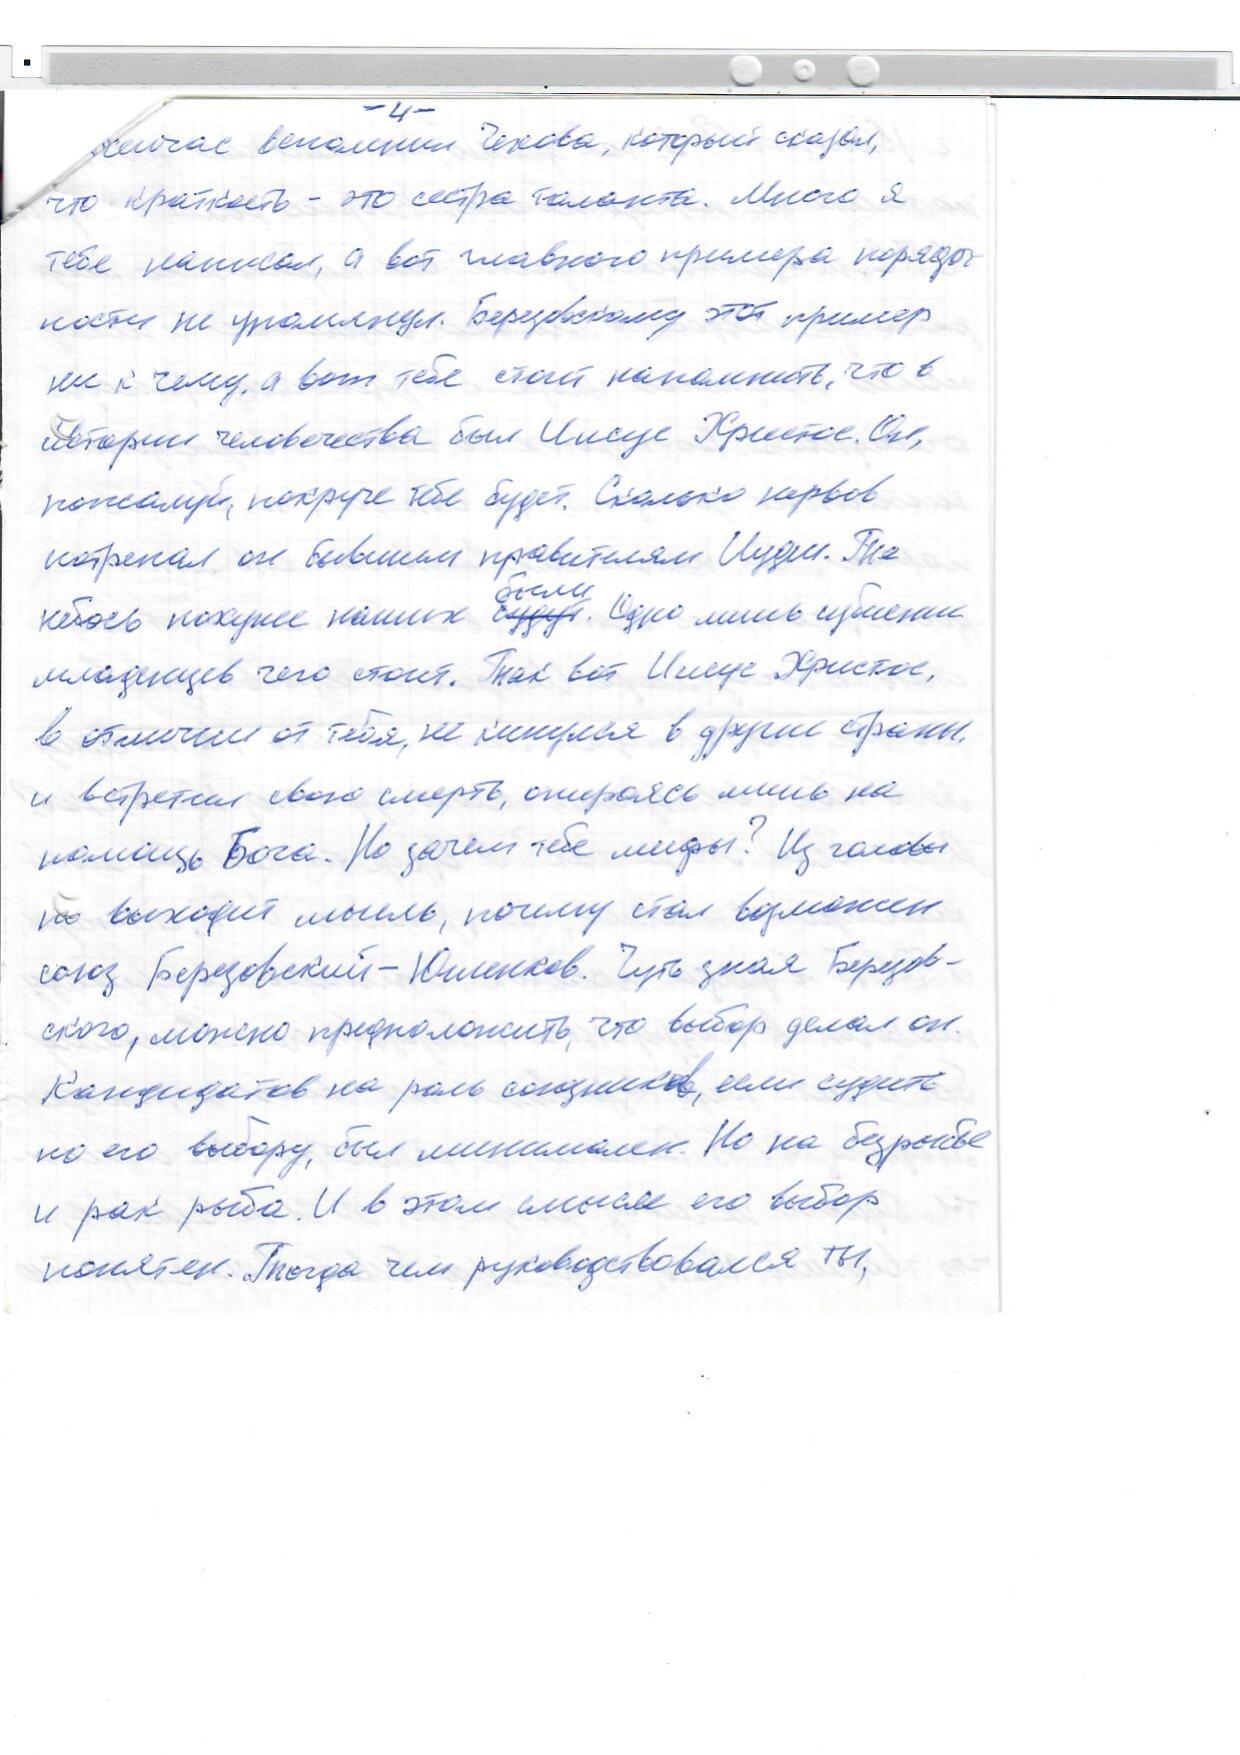 -4-
сейчас вспомнил Чехова, который сказал,
что краткость - это сестра таланта. Много я
тебе написал, а вот главного примера порядоч-
ности не упомянул. Березовскому этот пример
ни к чему, а вот тебе стоит напомнить, что в
истории человечества был Иисус Христос. Он,
пожалуй, покруче тебе будет. Сколько нервов
потрепал он бывшим правителям Иудеи. Те
небось похуже наших были. Одно лишь избиение
младенцев чего стоит. Так вот Иисус Христос,
в отличии от тебя, не кинулся в другие страны,
и встретил свою смерть, опираясь лишь на
помощь Бога. Но зачем тебе мифы? Из головы
не выходит мысль, почему стал возможен
союз Березовский-Юшенков. Чуть зная Березов-
ского, можно предположить, что выбор делал он.
Кандидатов на роль союзников, если судить
по его выбору, был минимален. Но на безрыбье
и рак рыба. И в этом смысле его выбор
понятен. Тогда чем руководствовался ты,